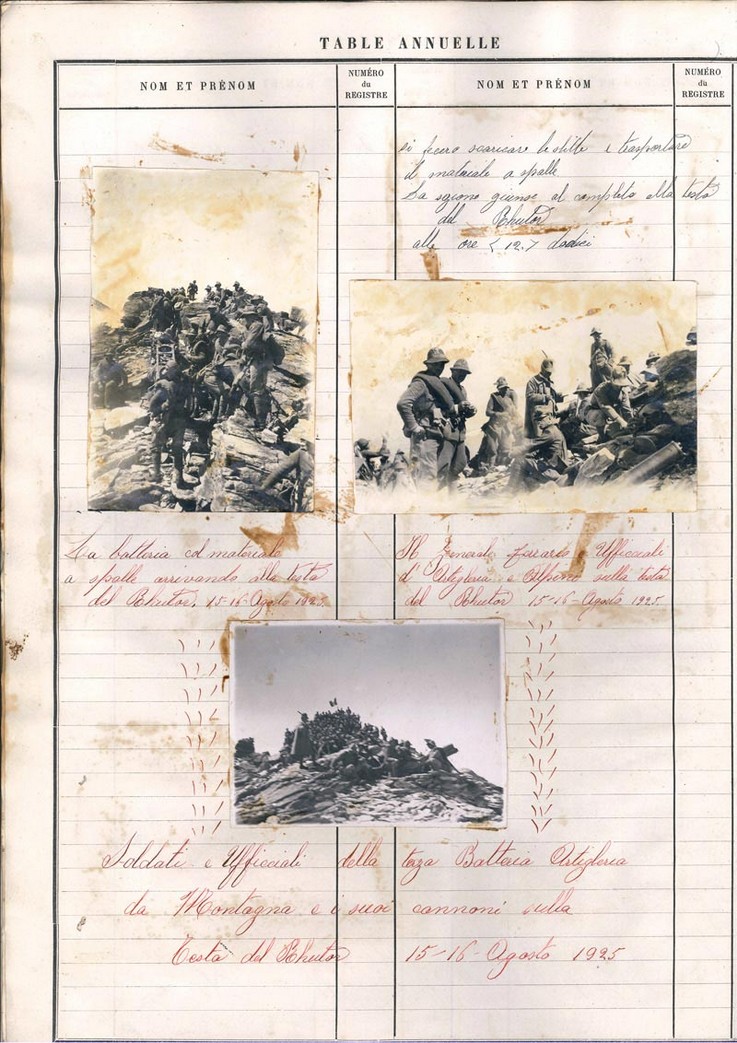 TABLE ANNUELLE
NOM ET PRÉNOM
NUMÉRO
du
REGISTRE
NOM ET PRÉNOM
NUMÉRO
du
REGISTRE
si fecero scaricare le slitte e trasportare
il materiale a spalle
La sgione giunse al completo alla testa
del Rhutor
alle ore < 12. > dodici
La batteria col materiale
a spalle arrivando alla testa
del Rhutor. 15-16-Agosto 1925.
Il Generale Ferrario e Ufficciali
d'Artiglieria e Alpini sulla testa
del Rhutor 15-16-Agosto 1925.
Soldati e Ufficciali della terza Batteria Artiglieria
da Montagna e i suoi cannoni sulla
Testa del Rhutor 15-16-Agosto 1925